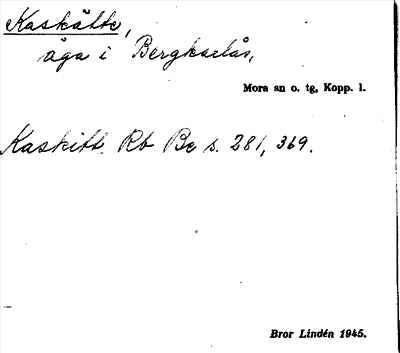 Kaskätte,
äga i Bergkarlås,
Mora sn o. tg, Kopp. l.
Kaskitt Rb Be s. 281, 369.
Bror Lindén 1945.